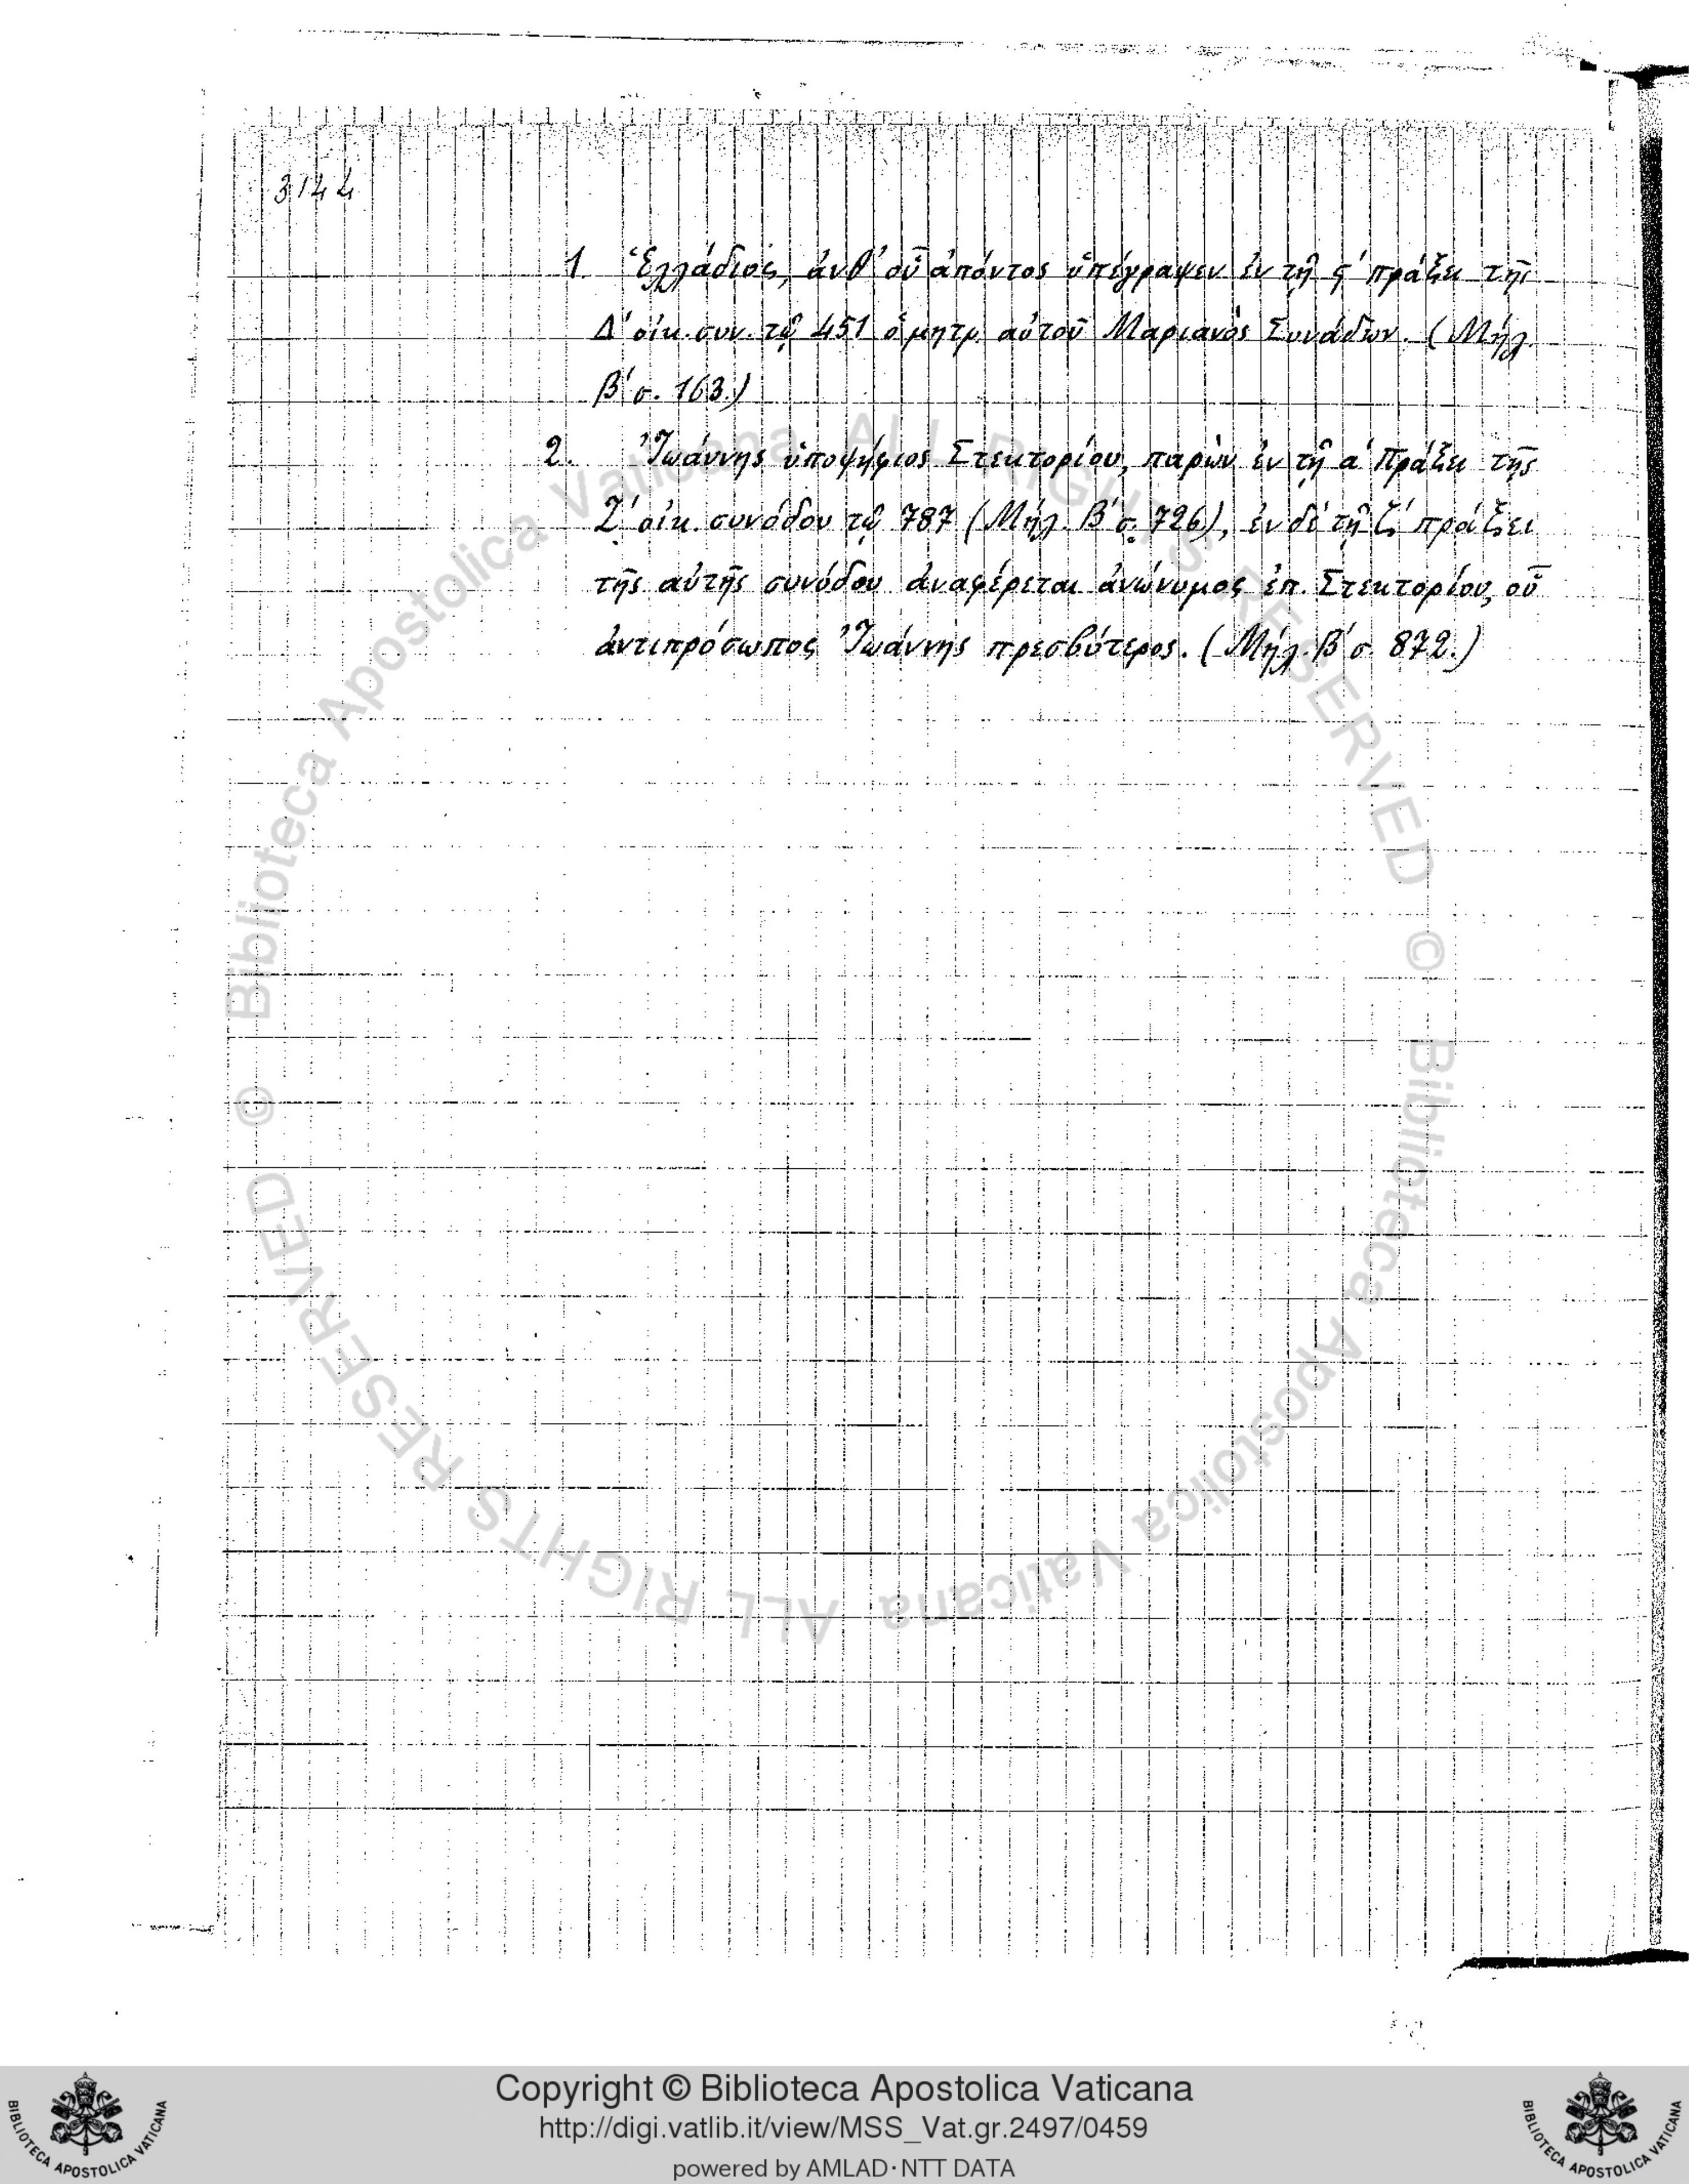 3144
1 Ἑλλάδιος, ἀνθ' οὗ ἀπόντος ὑπέγραψεν ἐν τῇ ϛ' πράξει τῆς
Δ' οἰκ. συν. τῷ 451 ὁ μητρ. αὐτοῦ Μαριανὸς Συνάδων. (Μήλ.
Β' σ. 163.)
2. Ἰωάννης ὑποψήφιος Στεκτορίου, παρὼν ἐν τῇ α' Πράξει τῆς
Ζ' οἰκ. συνόδου τῷ 787 (Μήλ. Β' σ. 726), ἐν δὲ τῇ ζ' πράξει
τῆς αὐτῆς συνόδου ἀναφέρεται ἀνώνυμος ἐπ. Στεκτορίου, οὗ
ἀντιπρόσωπος Ἰωάννης πρεσβύτερος. (Μήλ. Β' σ. 872.)
© Biblioteca Apostolica Vaticana ALL RIGHTS RESERVED
© Biblioteca Apostolica Vaticana ALL RIGHTS RESERVED
BIBLIOTECA APOSTOLICA VATICANA
Copyright © Biblioteca Apostolica Vaticana
http://digi.vatlib.it/view/MSS_Vat.gr.2497/0459
powered by AMLAD·NTT DATA
BIBLIOTECA APOSTOLICA VATICANA